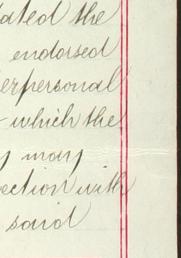 ated the
endorsed
erpersonal
which the
may
ection with
said